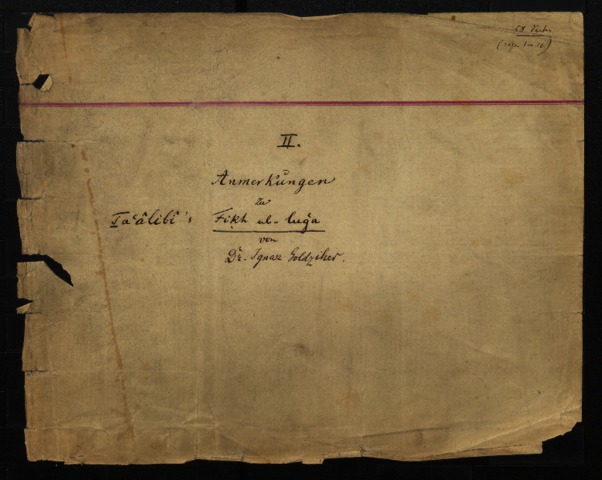 II.
Anmerkungen
zu
Ta'âlibî's Fiḳh ul-luġa
von
Dr. Ignaz Goldziher.